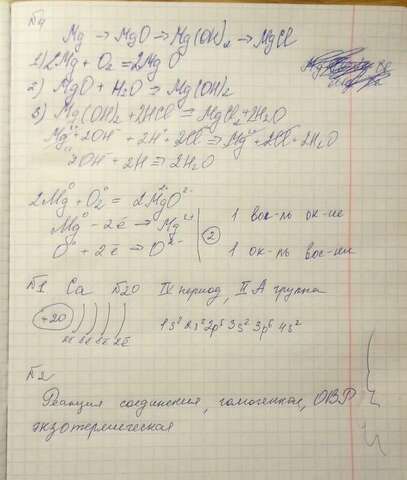 №4
Mg → MgO → Mg(OH)2 → MgCl
1) 2Mg + O2 = 2MgO
2) MgO + H2O → Mg(OH)2
3) Mg(OH)2 + 2HCl = MgCl2 + 2H2O
Mg²⁺ + 2OH⁻ + 2H⁺ + 2Cl⁻ → Mg²⁺ + 2Cl⁻ + 2H2O
2OH⁻ + 2H → 2H2O
2Mg⁰ + O2⁰ = 2Mg²⁺O²⁻
Mg⁰ - 2ē → Mg²⁺ | 2 | 1 вос-ль ок-ие
O⁰ + 2ē → O²⁻ | 1 ок-ль вос-ие
№1 Ca №20 IV период, II A группа
+20 ) ) ) ) 2ē 8ē 8ē 2ē 1s² 2s² 2p⁶ 3s² 3p⁶ 4s²
№2
Реакция соединения, гомогенная, ОВР
экзотермическая